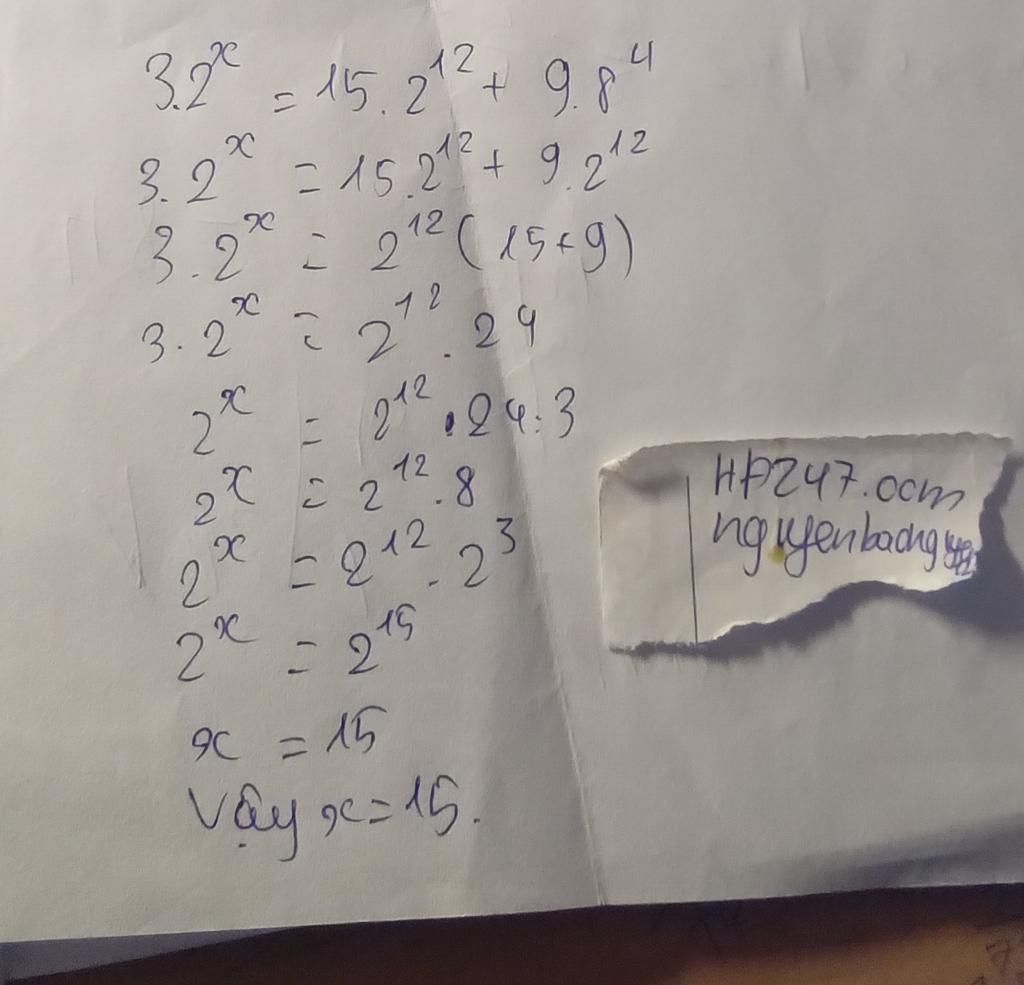 3.2^x = 15.2^12 + 9.8^4
3.2^x = 15.2^12 + 9.2^12
3.2^x = 2^12 (15+9)
3.2^x = 2^12 . 24
2^x = 2^12 . 24:3
2^x = 2^12 . 8
2^x = 2^12 . 2^3
2^x = 2^15
x = 15
Vậy x = 15.
HĐ247.com